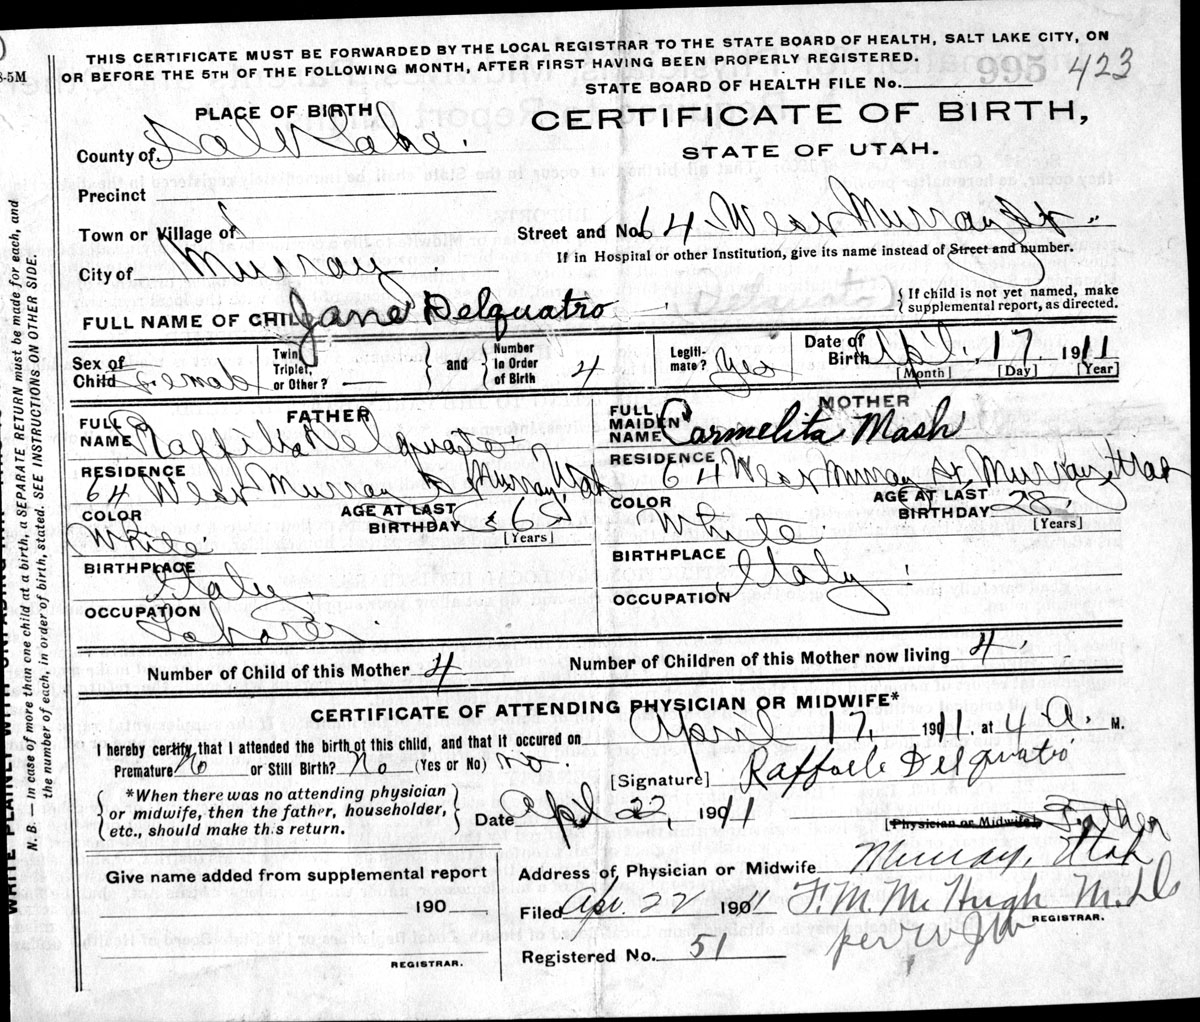 8-5M
THIS CERTIFICATE MUST BE FORWARDED BY THE LOCAL REGISTRAR TO THE STATE BOARD OF HEALTH, SALT LAKE CITY, ON
OR BEFORE THE 5TH OF THE FOLLOWING MONTH, AFTER FIRST HAVING BEEN PROPERLY REGISTERED.
995 423
STATE BOARD OF HEALTH FILE No.
PLACE OF BIRTH
CERTIFICATE OF BIRTH,
STATE OF UTAH.
County of Salt Lake.
Precinct
Town or Village of
Street and No. 64 West Murray St.
If in Hospital or other Institution, give its name instead of Street and number.
City of Murray
(Delquatro)
{ If child is not yet named, make
supplemental report, as directed.
FULL NAME OF CHILD Jane Delquatro
Sex of Child Female
Twin, Triplet, or Other? —
and
Number in Order of Birth 4
Legiti-mate? Yes
Date of Birth Apl., 17. 1911
[Month] [Day] [Year]
FATHER
FULL NAME Delquatro
RESIDENCE
64 West Murray St Murray, Utah
COLOR White
AGE AT LAST BIRTHDAY
[Years]
BIRTHPLACE Italy.
OCCUPATION
MOTHER
FULL MAIDEN NAME Carmelita Mash
RESIDENCE
64 West Murray St, Murray, Utah
COLOR White
AGE AT LAST BIRTHDAY 28
[Years]
BIRTHPLACE Italy
OCCUPATION
Number of Child of this Mother 4
Number of Children of this Mother now living 4
CERTIFICATE OF ATTENDING PHYSICIAN OR MIDWIFE*
I hereby certify that I attended the birth of this child, and that it occured on April 17, 1911. at 4 a. M.
Premature No or Still Birth? No (Yes or No) no.
[Signature] Raffaele Delquatro
*When there was no attending physician
or midwife, then the father, householder,
etc., should make this return.
Date Apl 22, 1911
[Physician or Midwife] Father
Give name added from supplemental report
190
REGISTRAR.
Address of Physician or Midwife Murray, Utah
Filed Apr. 22 1901 F. M. McHugh
REGISTRAR.
per
Registered No. 51
WRITE PLAINLY WITH UNFADING INK
N. B. — In case of more than one child at a birth, a SEPARATE RETURN must be made for each, and
the number of each, in order of birth, stated. SEE INSTRUCTIONS ON OTHER SIDE.